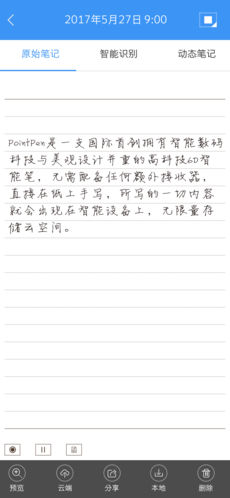 2017年5月27日 9:00
原始笔记 智能识别 动态笔记
PointPen是一支国际首创拥有智能数码
科技与美观设计并重的高科技6D智
能笔，无需配备任何额外接收器，
直接在纸上手写，所写的一切内容
就会出现在智能设备上，无限量存
储云空间。
预览 云端 分享 本地 删除